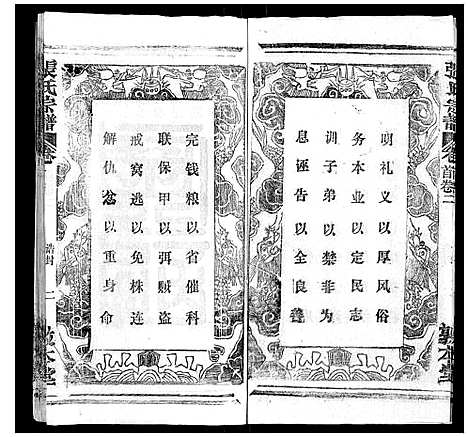 張氏宗譜
卷首卷二
敦本堂
明礼义以厚风俗
务本业以定民志
训子弟以禁非为
息诬告以全良善
完钱粮以省催科
联保甲以弭贼盗
戒窝逃以免株连
解仇忿以重身命
張氏宗譜
卷
誥封
二
敦本堂